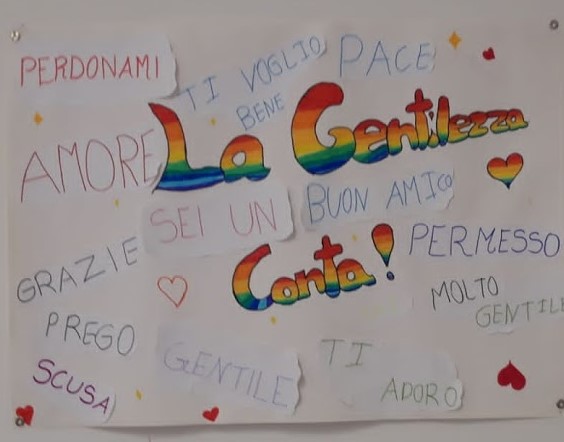 PERDONAMI
TI VOGLIO
BENE
PACE
AMORE
La Gentilezza
SEI UN
BUON AMICO
Conta!
PERMESSO
GRAZIE
MOLTO
GENTILE
PREGO
SCUSA
GENTILE
TI
ADORO